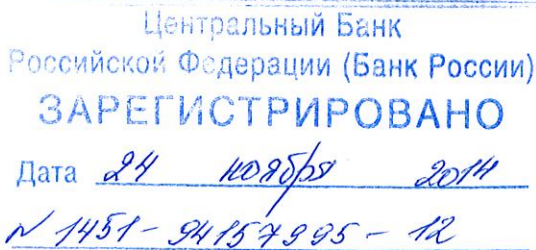 Центральный Банк
Российской Федерации (Банк России)
ЗАРЕГИСТРИРОВАНО
Дата 24 ноября 2014
№ 1451-94157995-12